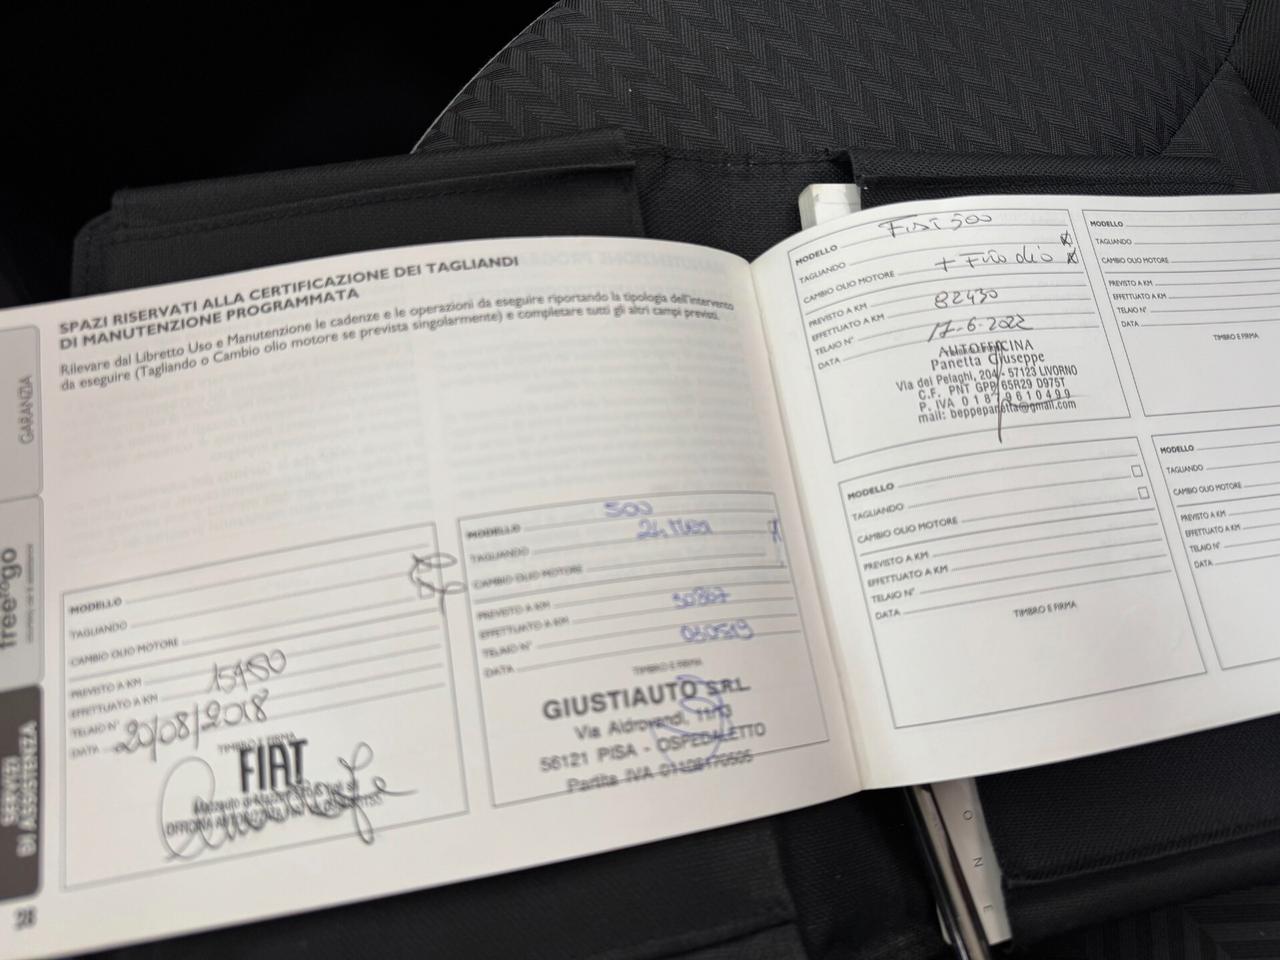 SPAZI RISERVATI ALLA CERTIFICAZIONE DEI TAGLIANDI
DI MANUTENZIONE PROGRAMMATA
Rilevare dal Libretto Uso e Manutenzione le cadenze e le operazioni da eseguire riportando la tipologia dell'intervento
da eseguire (Tagliando o Cambio olio motore se prevista singolarmente) e completare tutti gli altri campi previsti.
GARANZIA
free to go
SERVIZI
DI ASSISTENZA
28
MODELLO
TAGLIANDO
CAMBIO OLIO MOTORE
PREVISTO A KM
EFFETTUATO A KM 15950
TELAIO N°
DATA 20/08/2018
TIMBRO E FIRMA
FIAT
MODELLO 500
TAGLIANDO
CAMBIO OLIO MOTORE
PREVISTO A KM
EFFETTUATO A KM 30867
TELAIO N°
DATA 030519
TIMBRO E FIRMA
GIUSTIAUTO SRL
Via Aldrovandi, 11/13
56121 PISA - OSPEDALETTO
Partita IVA
MODELLO FIAT 500
TAGLIANDO
CAMBIO OLIO MOTORE + Filtro olio
PREVISTO A KM
EFFETTUATO A KM 82430
TELAIO N°
DATA 17-6-2022
AUTOFFICINA
Panetta Giuseppe
Via dei Pelaghi, 204 - 57123 LIVORNO
C.F. PNT GPP 65R29 D975T
P. IVA 01879610499
mail: beppepanetta@gmail.com
MODELLO
TAGLIANDO
CAMBIO OLIO MOTORE
PREVISTO A KM
EFFETTUATO A KM
TELAIO N°
DATA
TIMBRO E FIRMA
MODELLO
TAGLIANDO
CAMBIO OLIO MOTORE
PREVISTO A KM
EFFETTUATO A KM
TELAIO N°
DATA
TIMBRO E FIRMA
MODELLO
TAGLIANDO
CAMBIO OLIO MOTORE
PREVISTO A KM
EFFETTUATO A KM
TELAIO N°
DATA
O N E